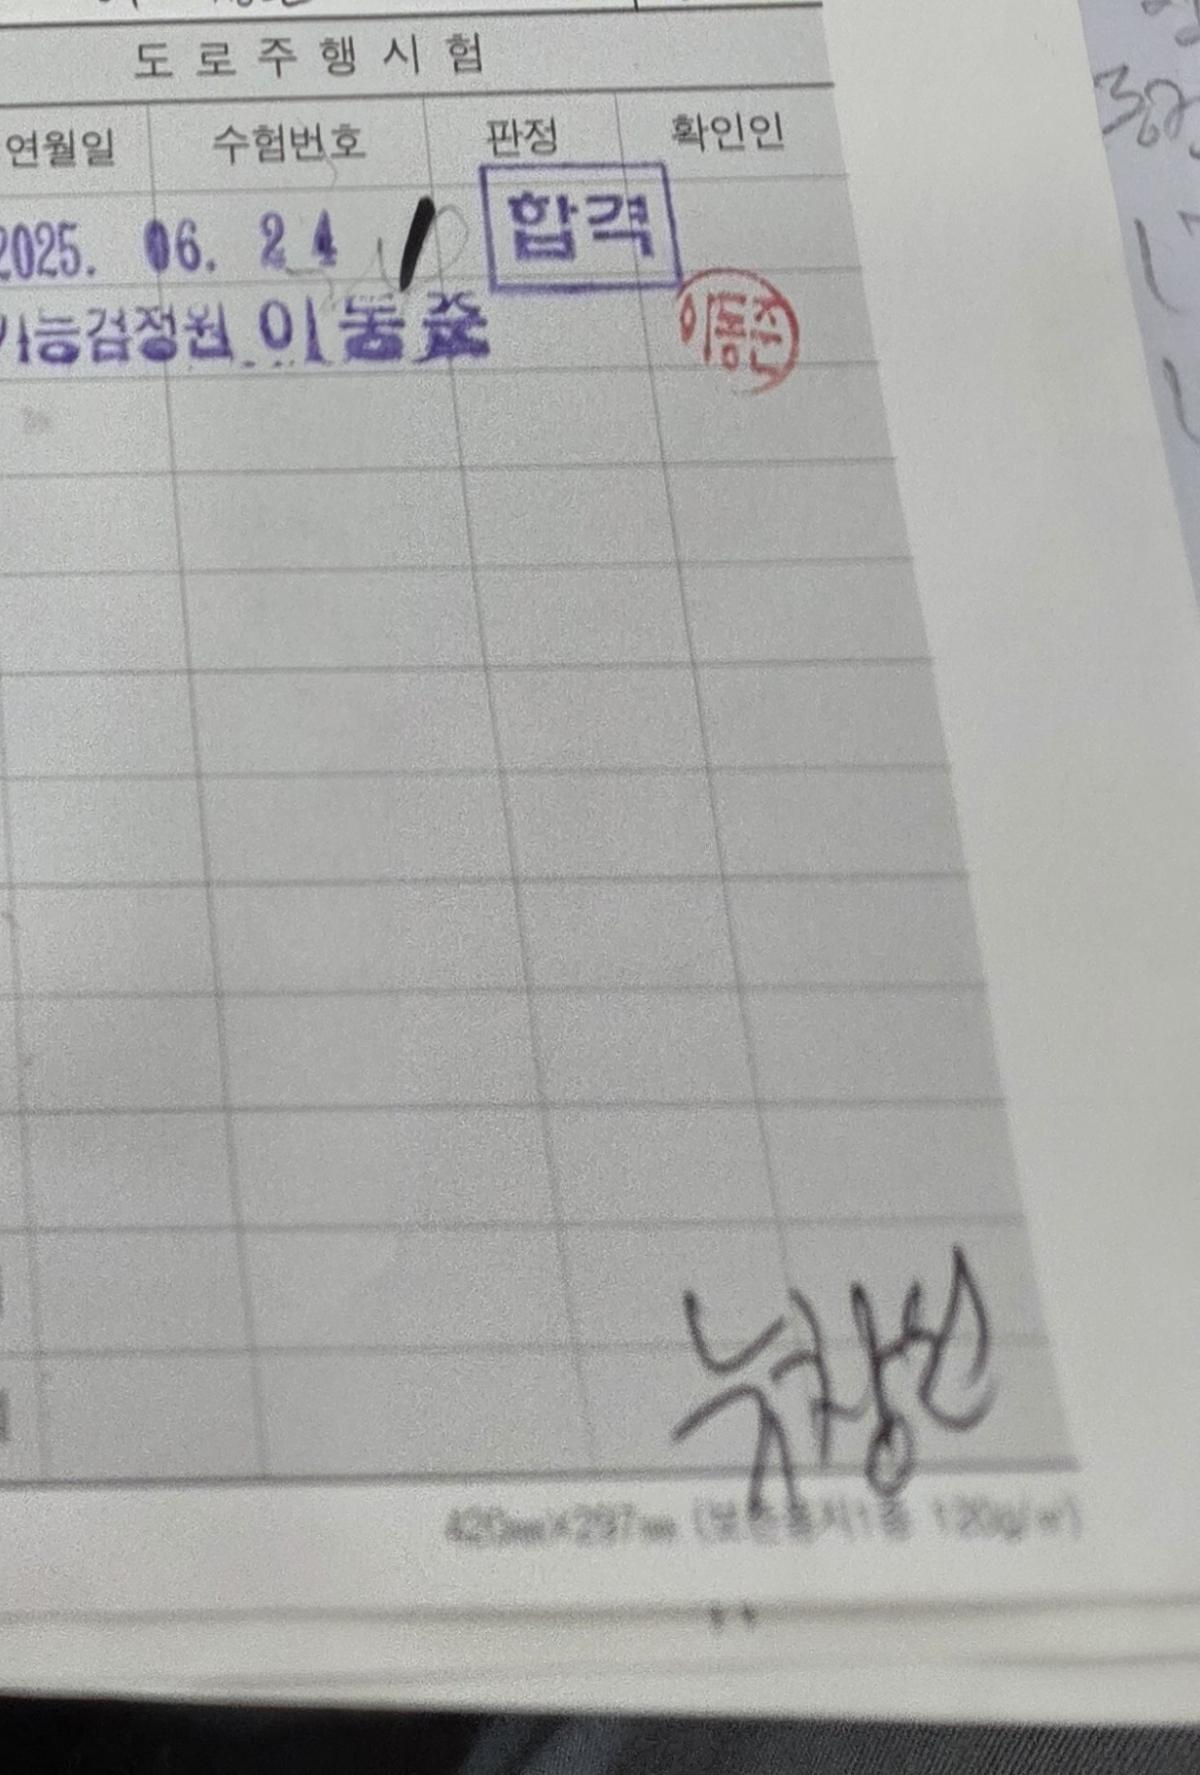 도로주행시험
연월일 수험번호 판정 확인인
2025. 06. 24 1 합격
기능검정원 이동준
420mm×297mm (보존용지1종 120g/㎡)